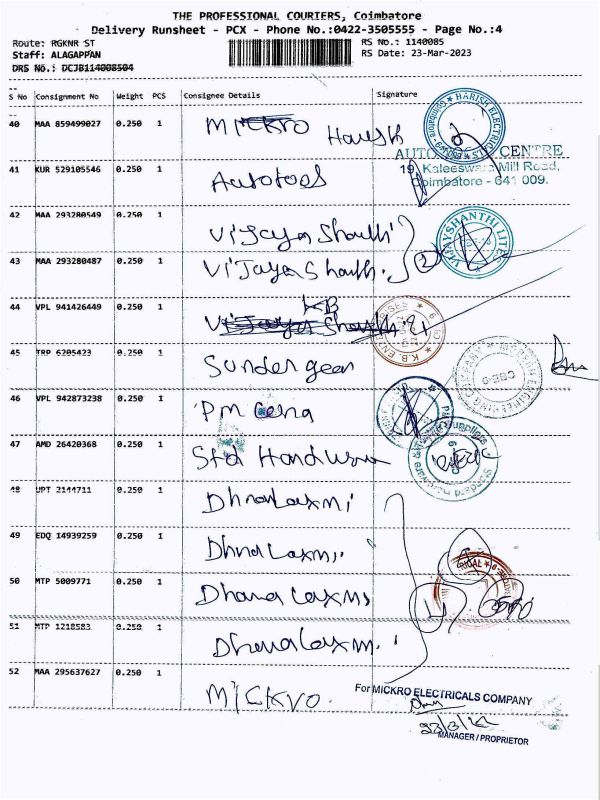 THE PROFESSIONAL COURIERS, Coimbatore
Delivery Runsheet - PCX - Phone No.:0422-3505555 - Page No.:4
Route: RGKNR ST RS No.: 1140085
Staff: ALAGAPPAN RS Date: 23-Mar-2023
DRS No.: DCJB114008504
S No Consignment No Weight PCS Consignee Details Signature
40 MAA 859499027 0.250 1 MICKRO Harish
HARISH ELECTRIC
AUTO CENTRE
41 KUR 529105546 0.250 1 Autotools
19, Kaleeswara Mill Road,
Coimbatore - 641 009.
42 MAA 293280549 0.250 1 Vijaya Shanthi
VIJAYSHANTHI LITES
43 MAA 293280487 0.250 1 Vijaya Shanthi. 2
44 VPL 941426449 0.250 1 KB
K.B. EN
45 TRP 6205423 0.250 1 Sundergean
46 VPL 942873238 0.250 1 PM
47 AMD 26420368 0.250 1 Std Hardware
48 UPT 2144711 0.250 1 Dhnalaxmi
49 EDQ 14939259 0.250 1 Dhnalaxmi
50 MTP 5009771 0.250 1 Dhanalaxmi
51 MTP 1218583 0.250 1 Dhanalaxmi
52 MAA 295637627 0.250 1 MICKRO.
For MICKRO ELECTRICALS COMPANY
MANAGER / PROPRIETOR